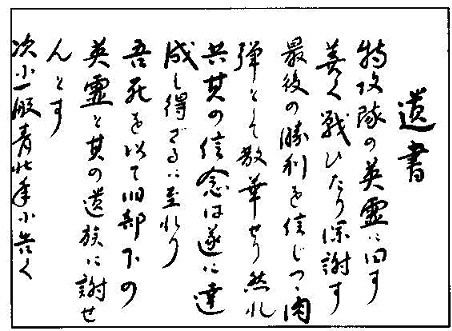 遺書
特攻隊の英霊に曰す
善く戦ひたり深謝す
最後の勝利を信じつゝ肉
弾として散華せり然れ
共其の信念は遂に達
成し得ざるに至れり
吾死を以て旧部下の
英霊と其の遺族に謝せ
んとす
次に一般青壮年に告ぐ